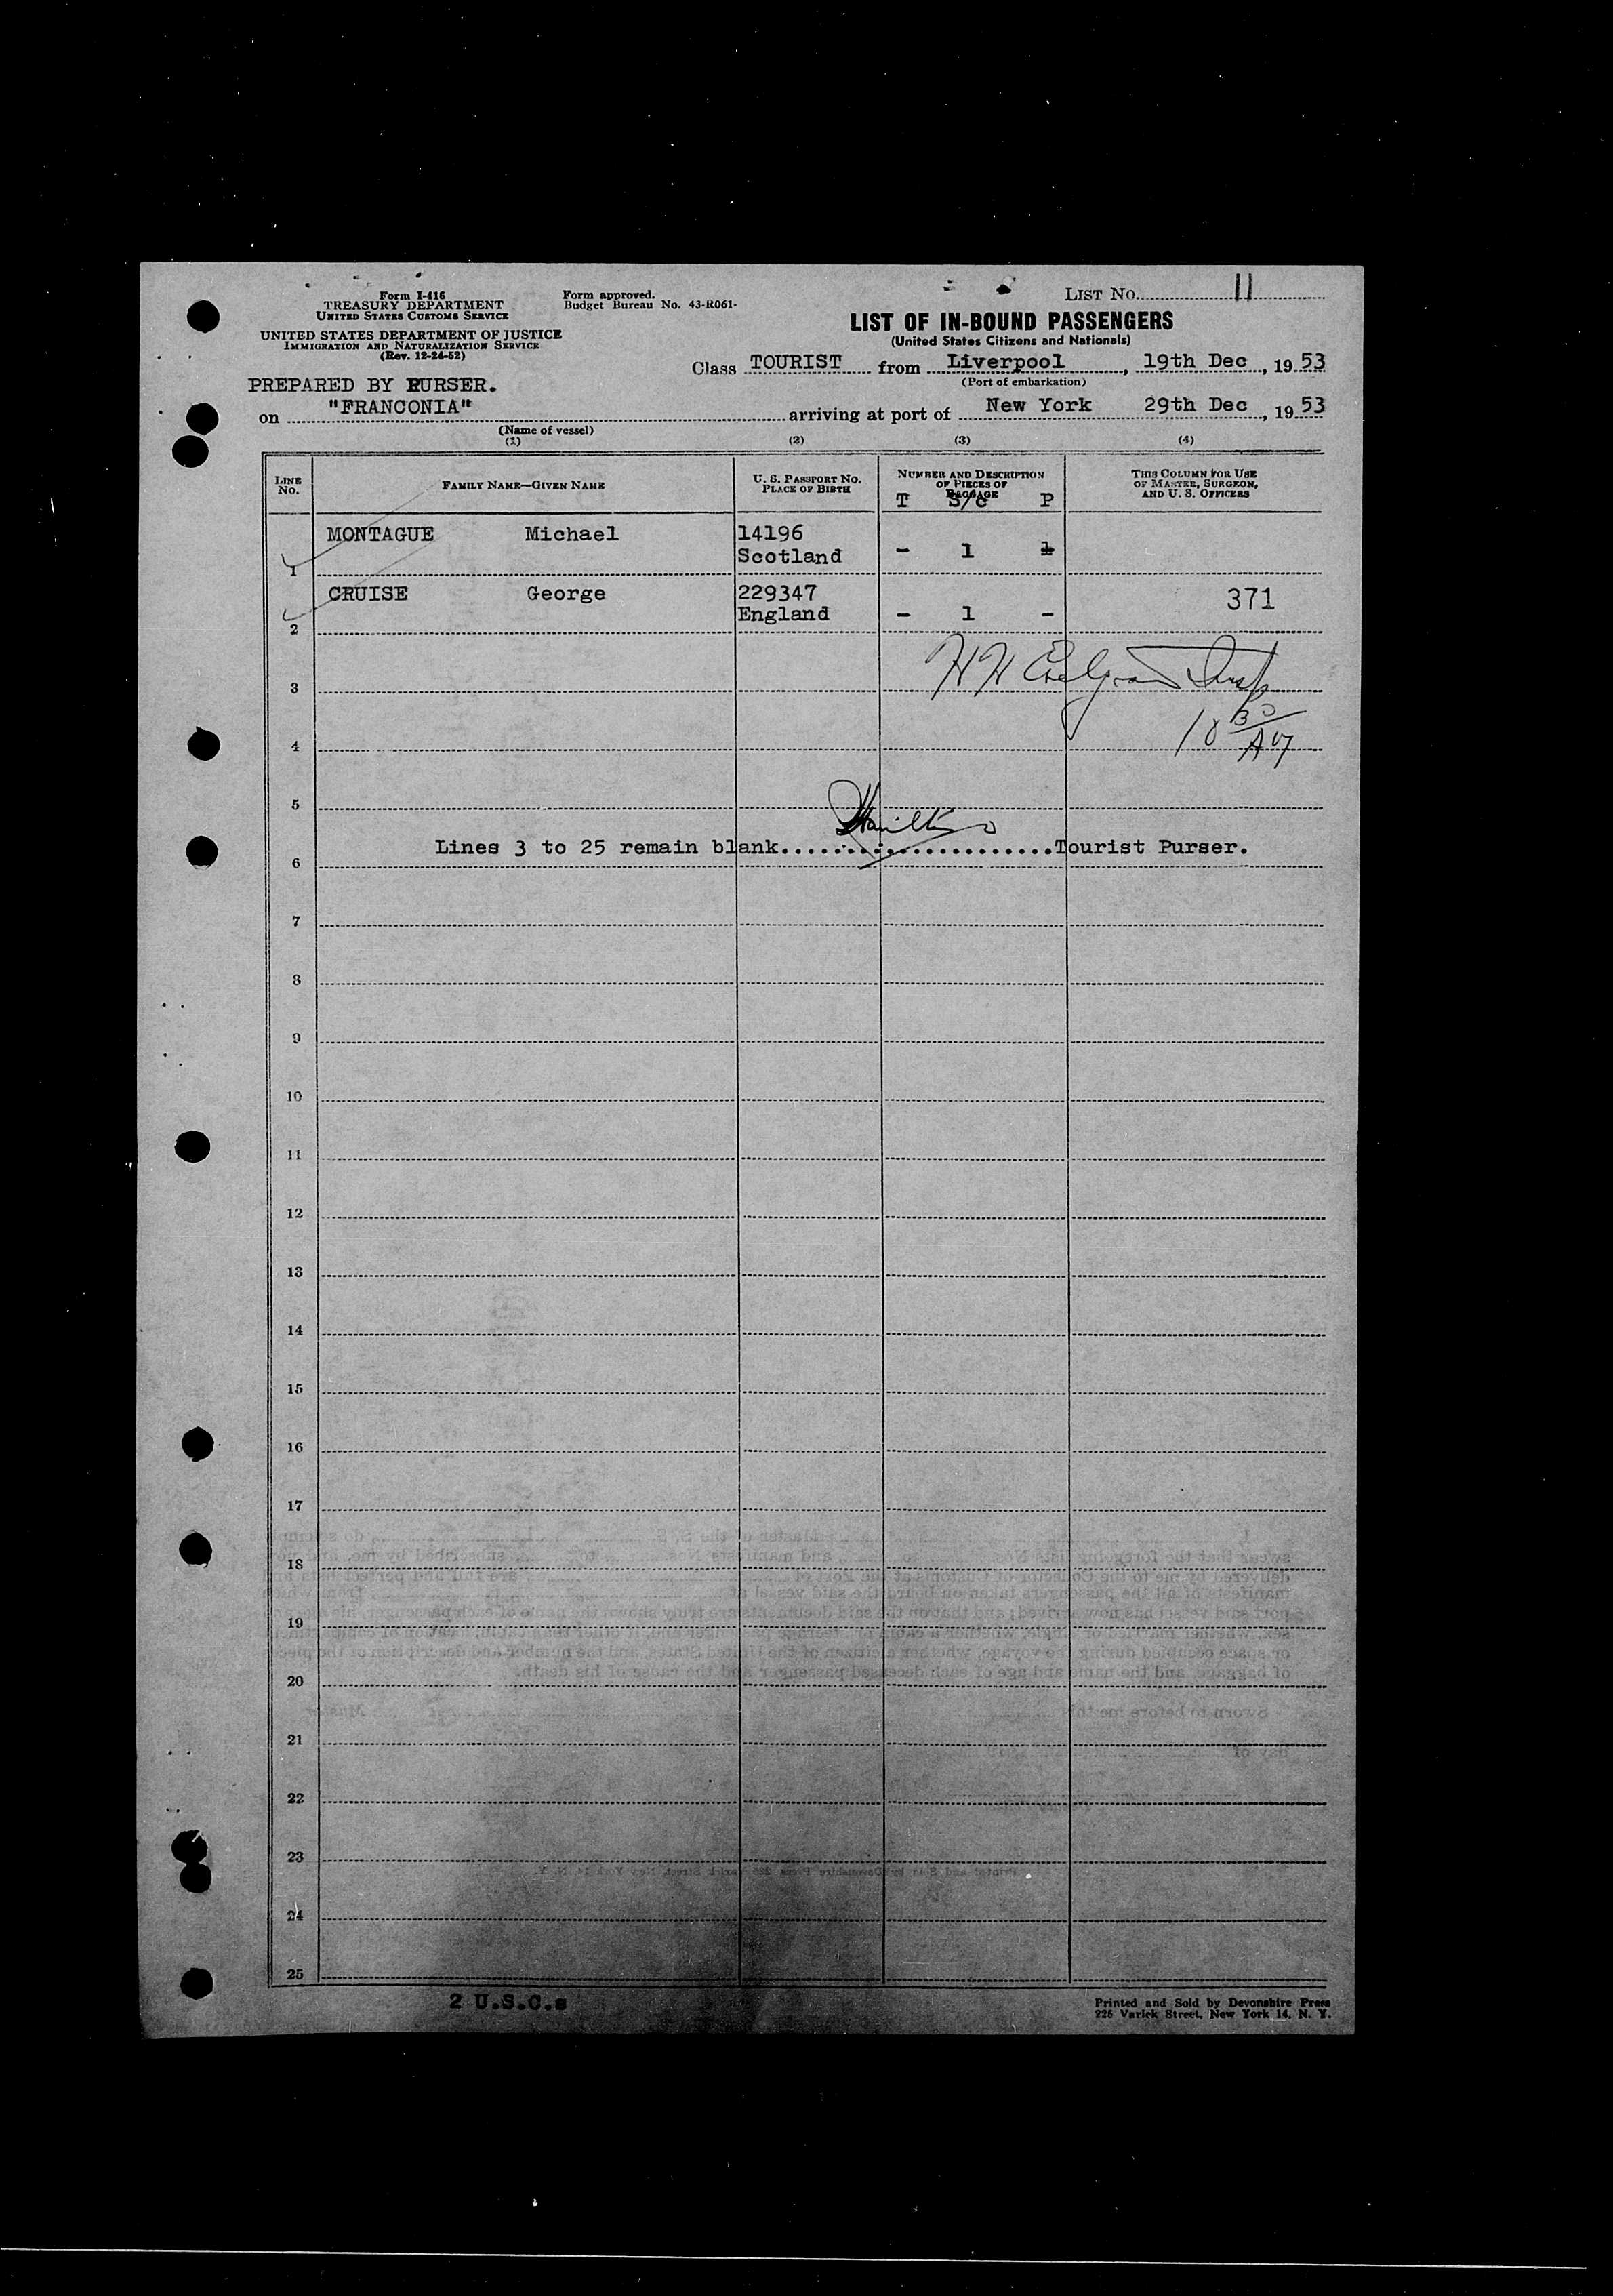 Form I-416
TREASURY DEPARTMENT
UNITED STATES CUSTOMS SERVICE
UNITED STATES DEPARTMENT OF JUSTICE
IMMIGRATION AND NATURALIZATION SERVICE
(Rev. 12-24-52)
Form approved.
Budget Bureau No. 43-R061-
LIST No. 11
LIST OF IN-BOUND PASSENGERS
(United States Citizens and Nationals)
Class TOURIST from Liverpool, 19th Dec, 1953
(Port of embarkation)
PREPARED BY PURSER.
on "FRANCONIA" arriving at port of New York 29th Dec, 1953
(Name of vessel)
(1) (2) (3) (4)
LINE No. FAMILY NAME—GIVEN NAME U. S. PASSPORT NO. PLACE OF BIRTH NUMBER AND DESCRIPTION OF PIECES OF BAGGAGE THIS COLUMN FOR USE OF MASTER, SURGEON, AND U. S. OFFICERS
T S/C P
MONTAGUE Michael 14196
1 Scotland - 1 1
CRUISE George 229347 371
2 England - 1 -
H H Insp
3
10 30/AM
4
5
Lines 3 to 25 remain blank......................Tourist Purser.
6
7
8
9
10
11
12
13
14
15
16
17
18
19
20
21
22
23
24
25
2 U.S.C.s
Printed and Sold by Devonshire Press
225 Varick Street, New York 14, N. Y.